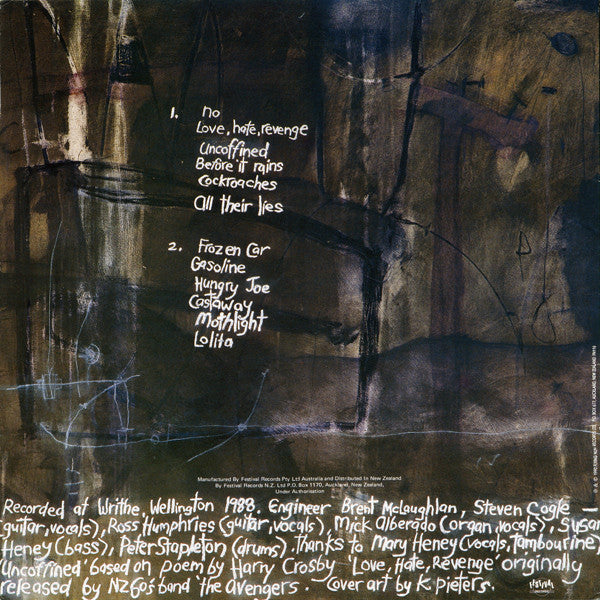 1. no
Love, hate, revenge
Uncoffined
Before it rains
Cockroaches
All their lies
2. Frozen Car
Gasoline
Hungry Joe
Castaway
Mothlight
Lolita
Manufactured By Festival Records Pty Ltd Australia and Distributed In New Zealand
By Festival Records N.Z. Ltd P.O. Box 1170, Auckland, New Zealand,
Under Authorisation
Recorded at Writhe, Wellington 1988. Engineer Brent McLaughlan, Steven Cogle -
(guitar, vocals), Ross Humphries (guitar, vocals), Mick Alberado (organ, vocals), Susan
Heney (bass), Peter Stapleton (drums). thanks to Mary Heney (vocals, tambourine)
'Uncoffined' based on poem by Harry Crosby 'Love, Hate, Revenge' originally
released by NZ 60's band 'the avengers'. Cover art by K Pieters.
FESTIVAL